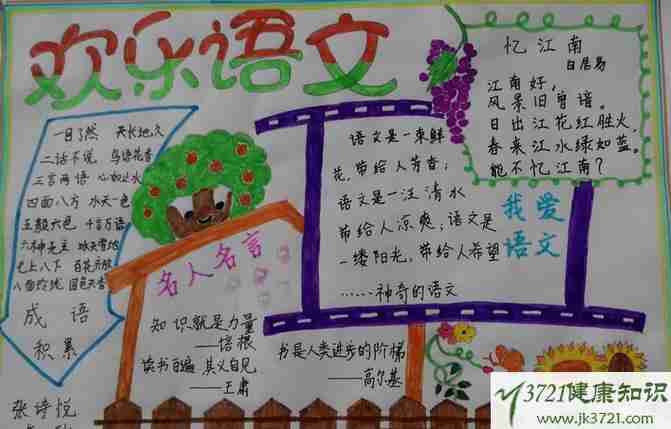 欢乐语文
一目了然 天长地久
二话不说 鸟语花香
三言两语 心如止水
四面八方 水天一色
五颜六色 千言万语
六神无主 冰天雪地
七上八下 百花齐放
八面玲珑 国色天香
成语
积累
张诗悦
名人名言
知识就是力量
——培根
读书百遍 其义自见
——王肃
书是人类进步的阶梯
——高尔基
语文是一束鲜
花,带给人芳香;
语文是一汪清水
带给人凉爽;语文是
一缕阳光,带给人希望
……神奇的语文
我爱
语文
忆江南
白居易
江南好,
风景旧曾谙。
日出江花红胜火,
春来江水绿如蓝。
能不忆江南?
3721健康知识
www.jk3721.com